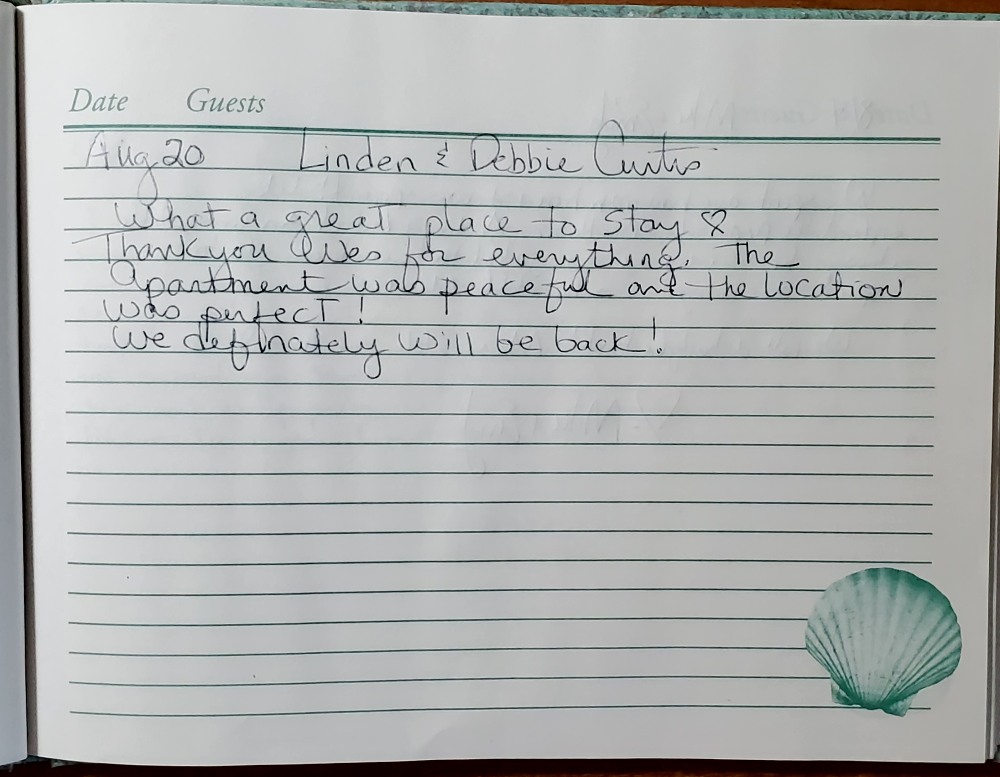 Date Guests
Aug 20 Linden & Debbie Curtis
What a great place to stay ♡
Thank you for everything. The
Apartment was peaceful and the location
was perfect!
We definately will be back!